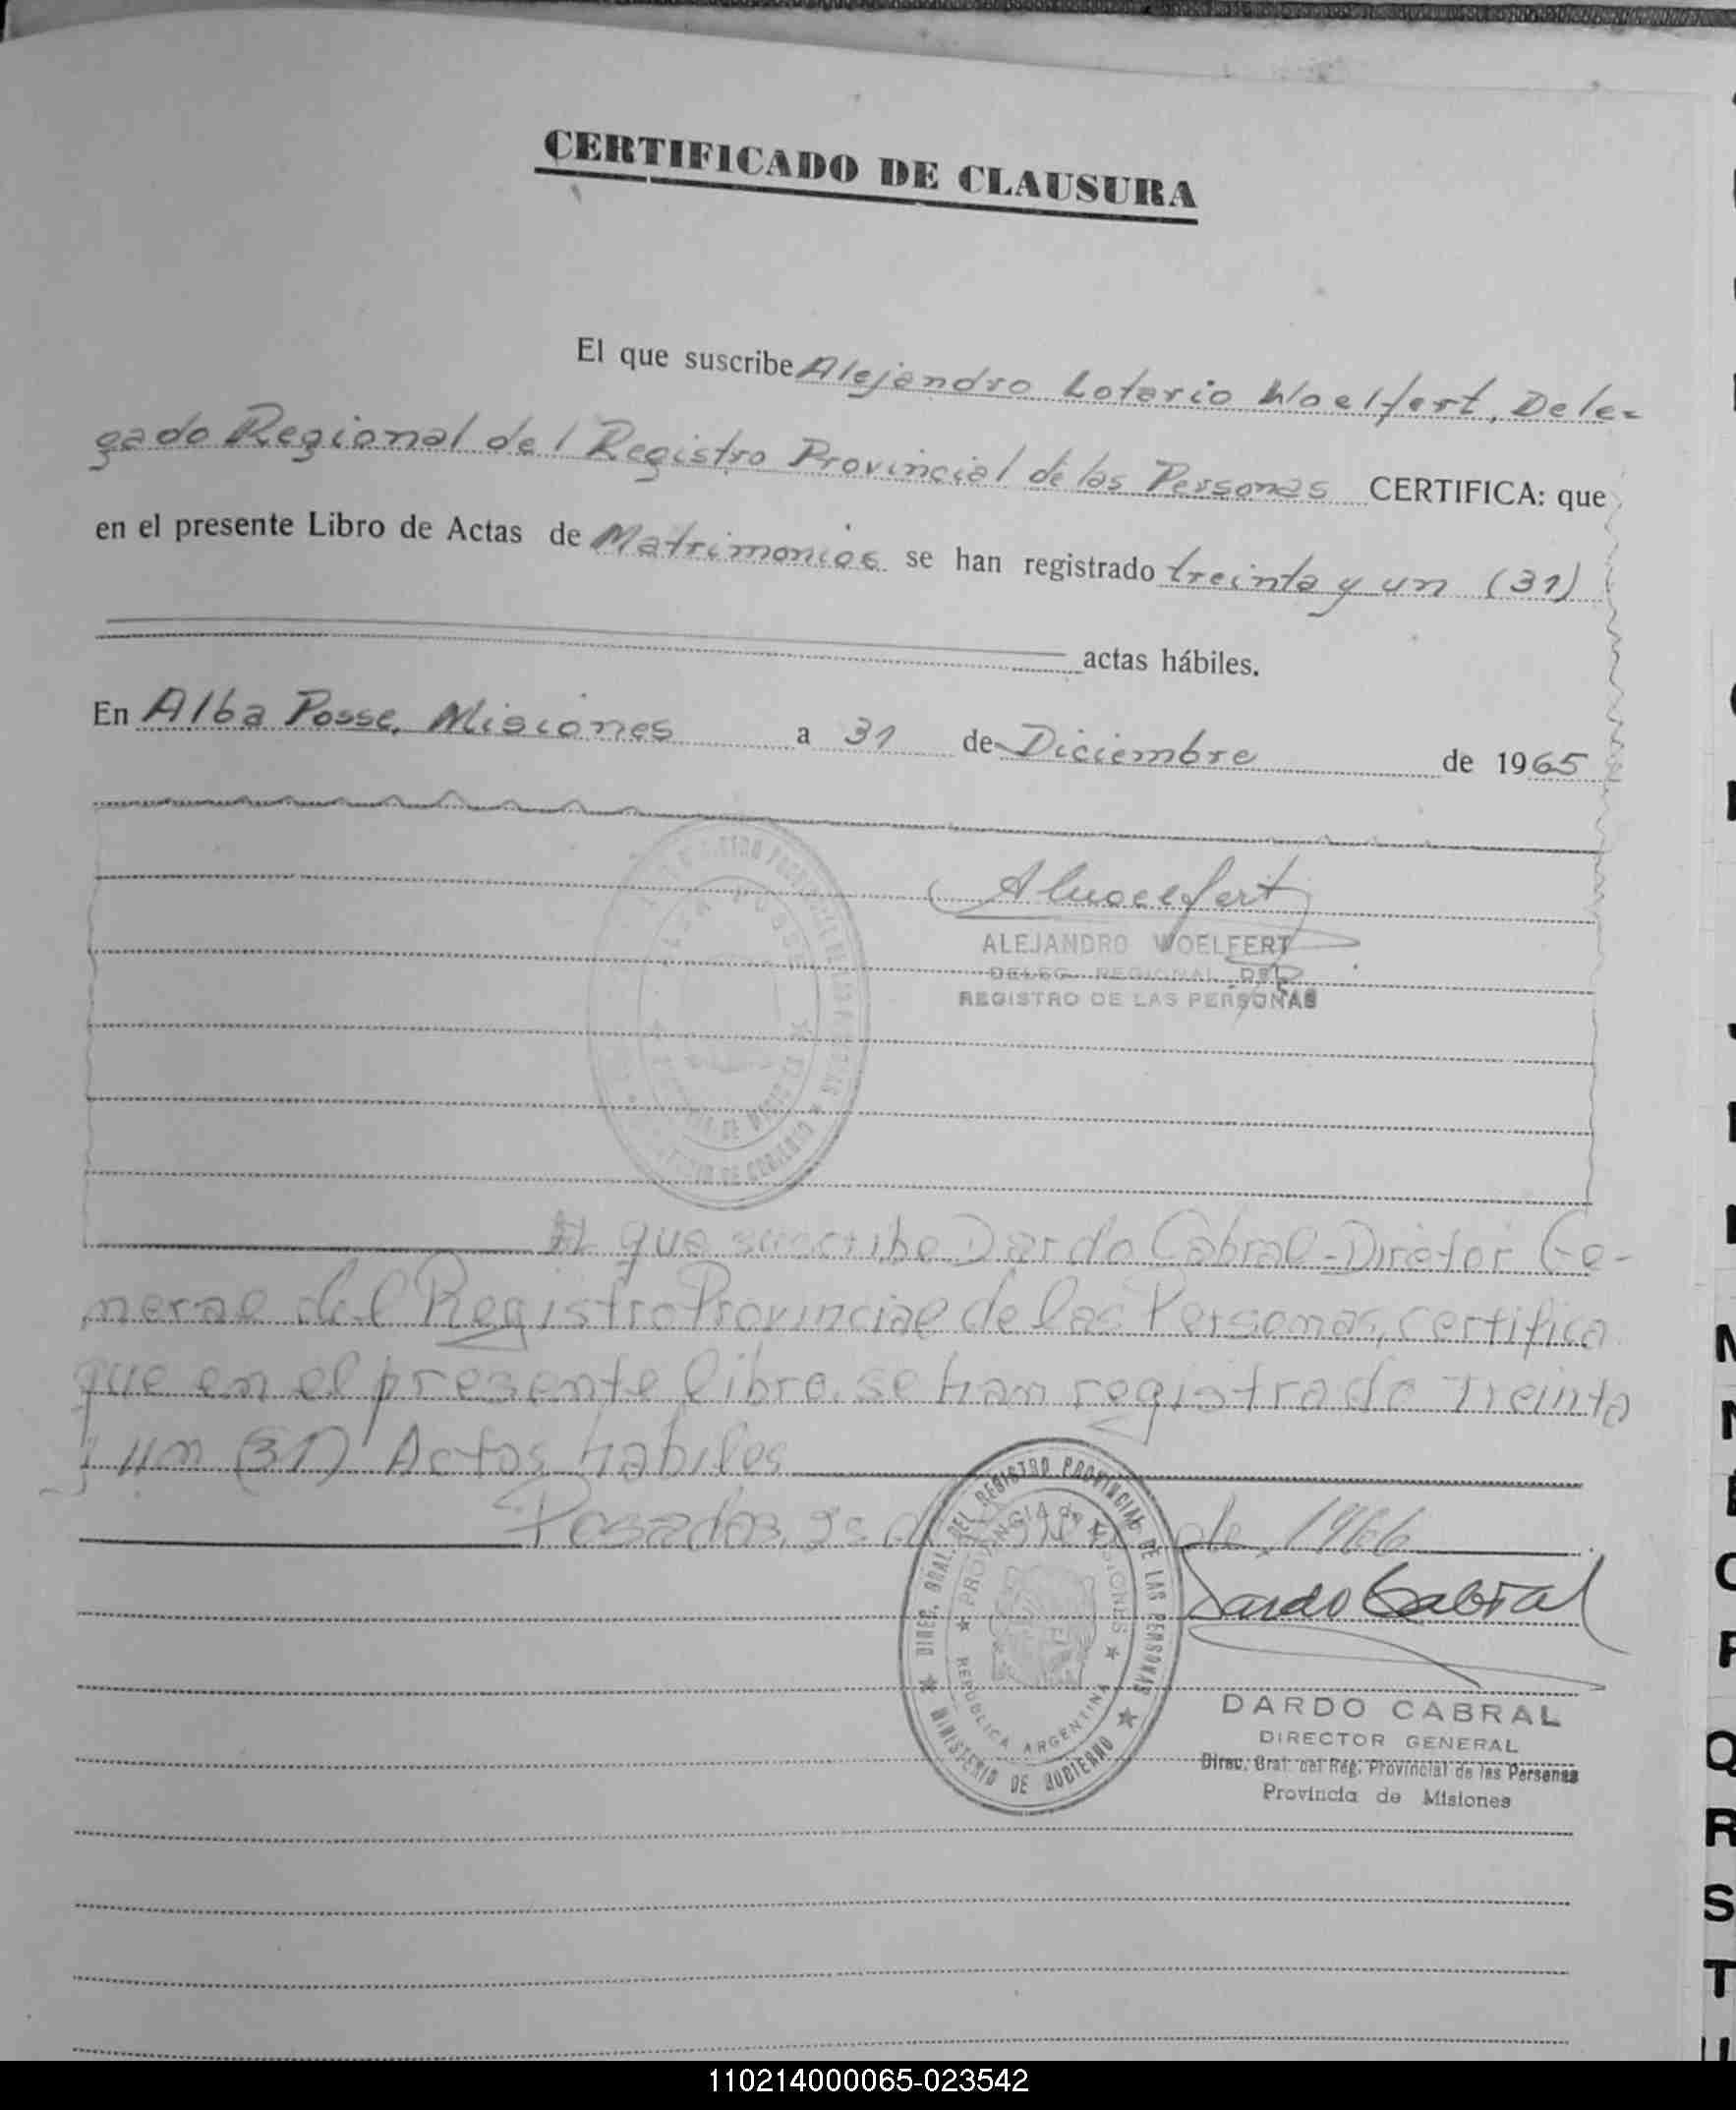 CERTIFICADO DE CLAUSURA
El que suscribe Alejandro Lotario Woelfert, Dele-
gado Regional del Registro Provincial de las Personas CERTIFICA: que
en el presente Libro de Actas de Matrimonios se han registrado treinta y un (31)
actas hábiles.
En Alba Posse, Misiones a 31 de Diciembre de 1965
AWoelfert
ALEJANDRO WOELFERT
DELEG. REGIONAL DEL
REGISTRO DE LAS PERSONAS
El que suscribe Dardo Cabral - Diretor Ge-
neral del Registro Provincial de las Personas, certifica
que en el presente libro se han registrado Treinta
y un (31) Actas habiles
Posadas, de 1966
Dardo Cabral
DIREC. GRAL. DEL REGISTRO PROVINCIAL DE LAS PERSONAS
MINISTERIO DE GOBIERNO
PROVINCIA de MISIONES
REPUBLICA ARGENTINA
DARDO CABRAL
DIRECTOR GENERAL
Direc. Gral. del Reg. Provincial de las Personas
Provincia de Misiones
Q
R
S
T
110214000065-023542